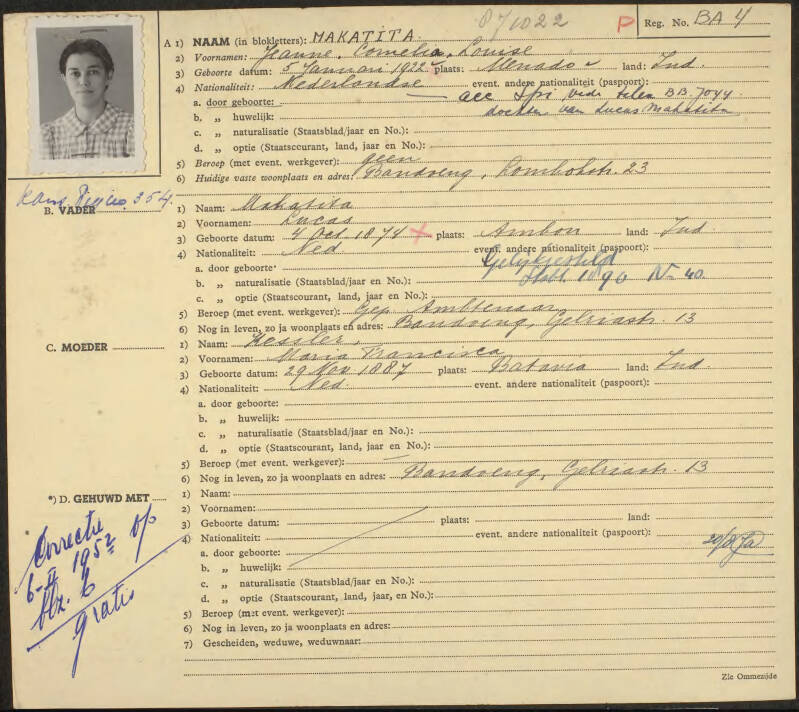 87022 P Reg. No. BA 4
A 1) NAAM (in blokletters): MAKATITA.
2) Voornamen: Jeanne, Cornelia, Louise
3) Geboorte datum: 5 Januari 1922 plaats: Menado land: Ind.
4) Nationaliteit: Nederlandse event. andere nationaliteit (paspoort):
a. door geboorte: acc Spri vide telex BB.7044
b. „ huwelijk: dochter van Lucas Makatita
c. „ naturalisatie (Staatsblad/jaar en No.):
d. „ optie (Staatscourant, land, jaar en No.):
5) Beroep (met event. werkgever): geen
6) Huidige vaste woonplaats en adres: Bandoeng, Lombokstr. 23
354.
B. VADER
1) Naam: Makatita
2) Voornamen: Lucas
3) Geboorte datum: 4 Oct 1874 x plaats: Ambon land: Ind.
4) Nationaliteit: Ned event. andere nationaliteit (paspoort):
a. door geboorte: Gelijkgesteld
b. „ naturalisatie (Staatsblad/jaar en No.): Stbl. 1890 No 40.
c. „ optie (Staatscourant, land, jaar en No.):
5) Beroep (met event. werkgever): Gep. Ambtenaar
6) Nog in leven, zo ja woonplaats en adres: Bandoeng, Gelriastr. 13
C. MOEDER
1) Naam: Kessler,
2) Voornamen: Maria Francisca
3) Geboorte datum: 29 Nov 1887 plaats: Batavia land: Ind.
4) Nationaliteit: Ned. event. andere nationaliteit (paspoort):
a. door geboorte:
b. „ huwelijk:
c. „ naturalisatie (Staatsblad/jaar en No.):
d. „ optie (Staatscourant, land, jaar en No.):
5) Beroep (met event. werkgever):
6) Nog in leven, zo ja woonplaats en adres: Bandoeng, Gelriastr. 13
*) D. GEHUWD MET
1) Naam:
2) Voornamen:
3) Geboorte datum: plaats: land:
4) Nationaliteit: event. andere nationaliteit (paspoort):
a. door geboorte:
b. „ huwelijk:
c. „ naturalisatie (Staatsblad/jaar en No.):
d. „ optie (Staatscourant, land, jaar, en No.):
5) Beroep (met event. werkgever):
6) Nog in leven, zo ja woonplaats en adres:
7) Gescheiden, weduwe, weduwnaar:
Correctie op
6-II 1952
blz. 6
gratis
Zie Ommezijde